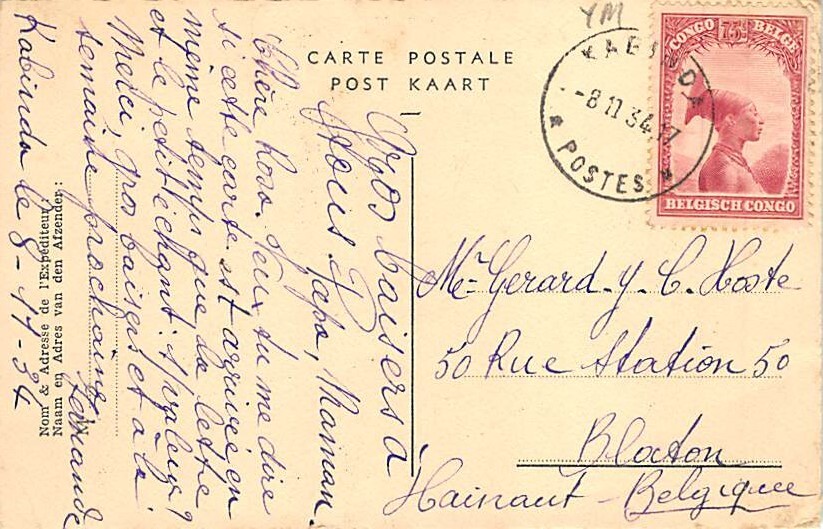 CARTE POSTALE
POST KAART
YM
KABINDA
-8 11 34 17
* POSTES *
CONGO 75c BELGE
BELGISCH CONGO
Mr Gerard-y. C. Hoste
50 Rue Station 50
Blaton
Hainaut - Belgique
Nom & Adresse de l'Expéditeur:
Naam en Adres van den Afzender:
Kabinda le 8-11-34
Chère Rosa. Veux tu me dire
si cette carte est arrivée en
même temps que sa lettre
et le petit échant. s/valeur?
Merci, gros baisers et à la
semaine prochaine
Fernande
Gros baisers à
tous. Papa, Maman.